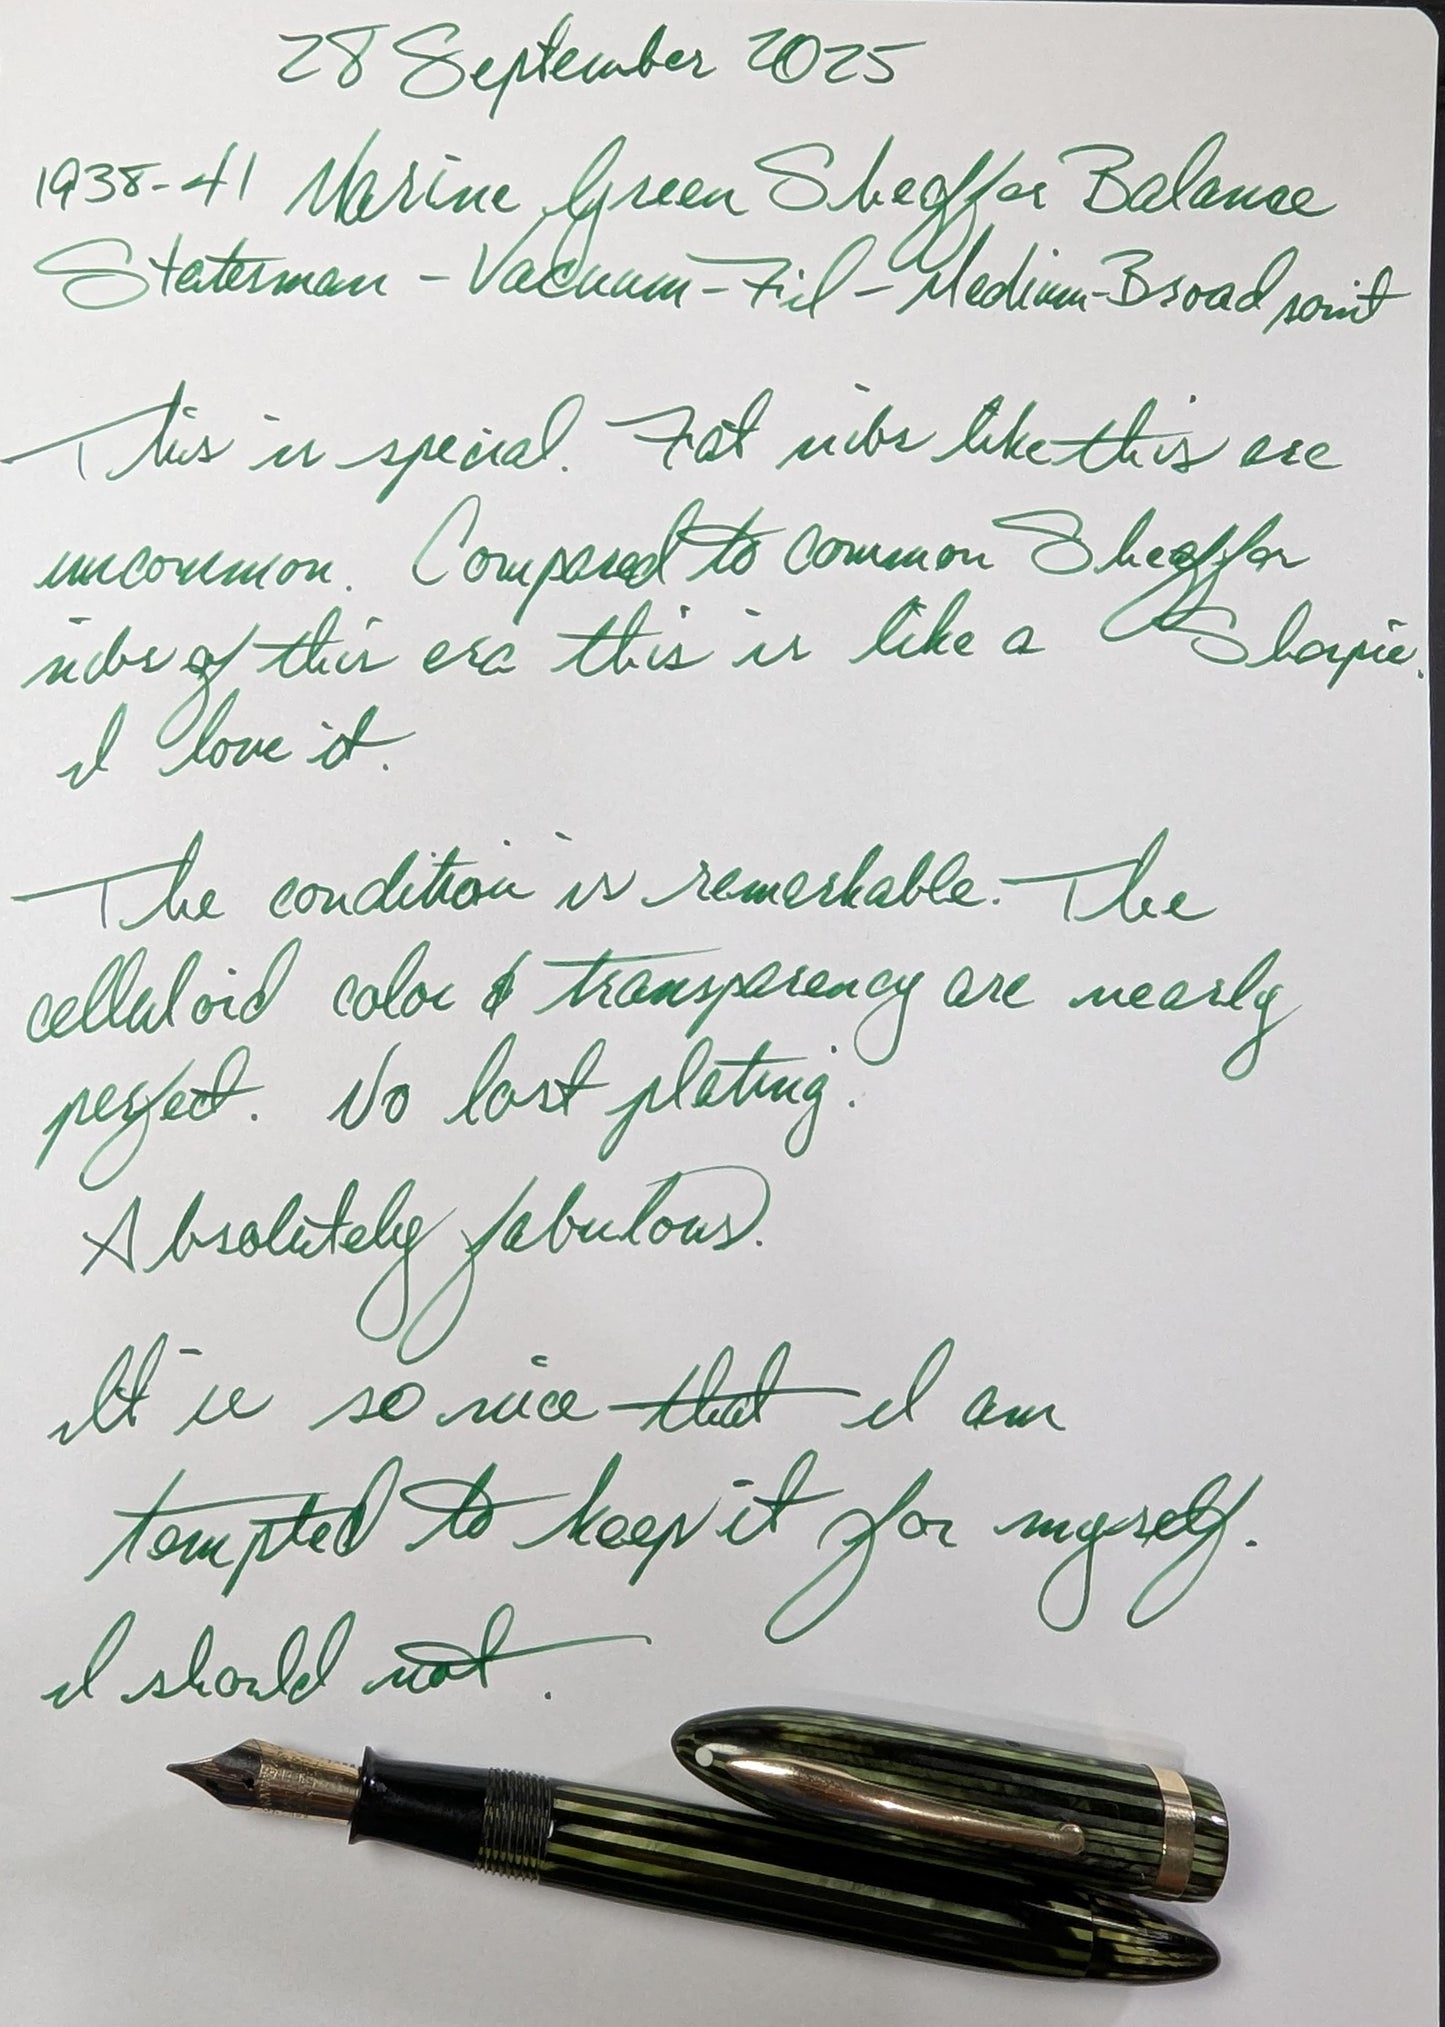 28 September 2025
1938-41 Marine Green Sheaffer Balance
Statesman - Vacuum-Fil - Medium-Broad point
This is special. Fat nibs like this are
uncommon. Compared to common Sheaffer
nibs of this era this is like a Sharpie.
I love it.
The condition is remarkable. The
celluloid color & transparency are nearly
perfect. No lost plating.
Absolutely fabulous.
It is so nice that I am
tempted to keep it for myself.
I should not.